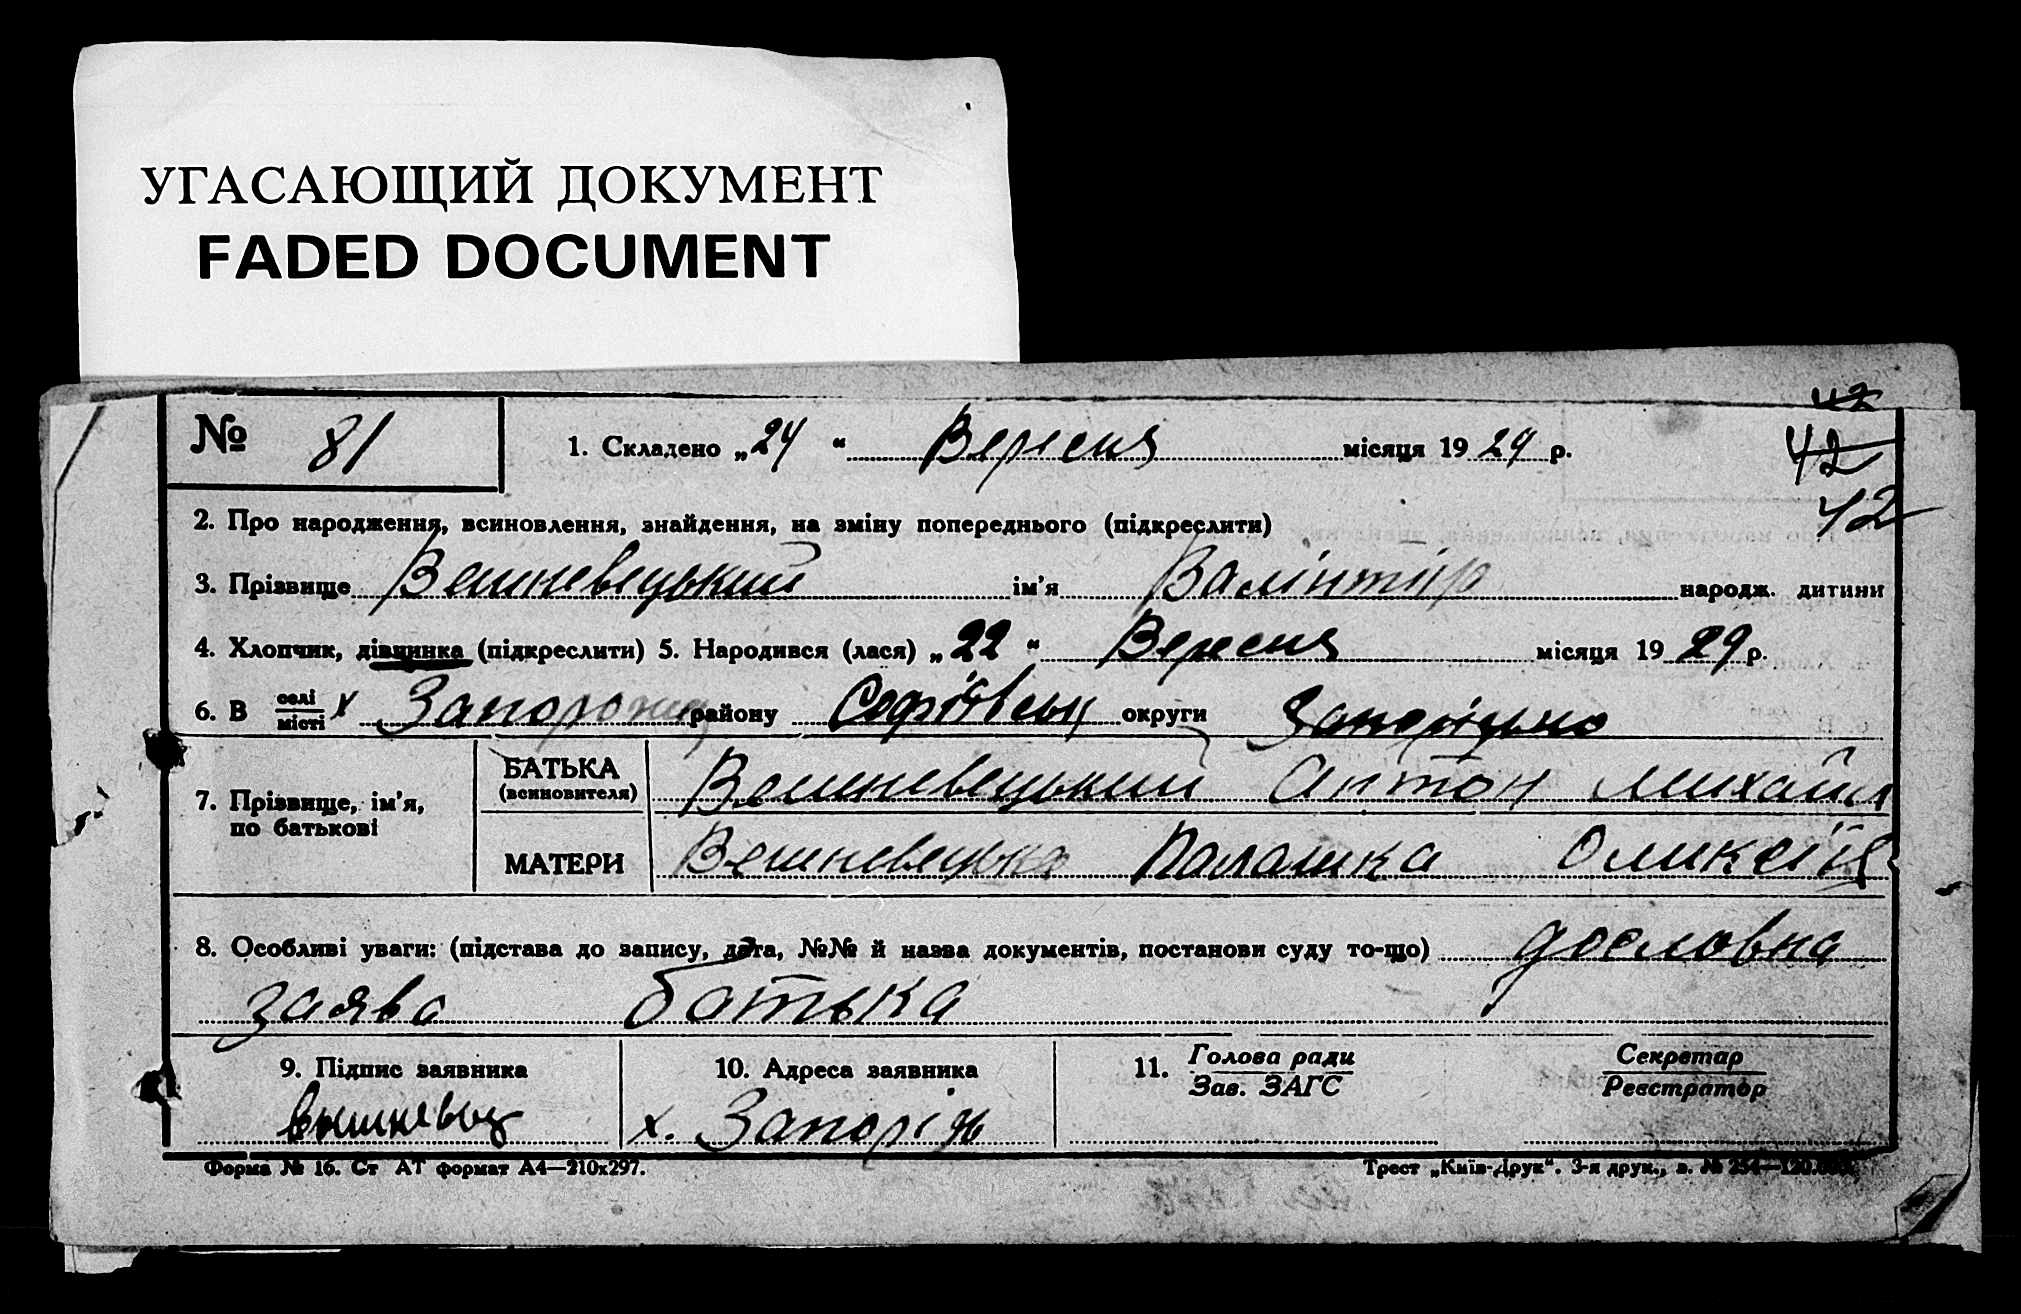 УГАСАЮЩИЙ ДОКУМЕНТ
FADED DOCUMENT
42
№ 81 1. Складено „24“ Вересня місяця 1929 р. 42
42
2. Про народження, всиновлення, знайдення, на зміну попереднього (підкреслити)
3. Прізвище Вешневецький ім'я народж. дитини
4. Хлопчик, дівчинка (підкреслити) 5. Народився (лася) „22“ Вересня місяця 1929 р.
6. В селі/місті х району округи
7. Прізвище, ім'я, по батькові
БАТЬКА (всиновителя) Вешневецький Антон Михайл
МАТЕРИ Вешневецька Палашка Оликсіїв
8. Особливі уваги: (підстава до запису, дата, №№ й назва документів, постанови суду то-що) дословна
заява батька
9. Підпис заявника 10. Адреса заявника 11. Голова ради/Зав. ЗАГС Секретар/Реєстратор
х. Запоріж
Форма № 16. Ст АТ формат А4—210х297. Трест „Київ-Друк“. 3-я друк., з. № 254—120.000.